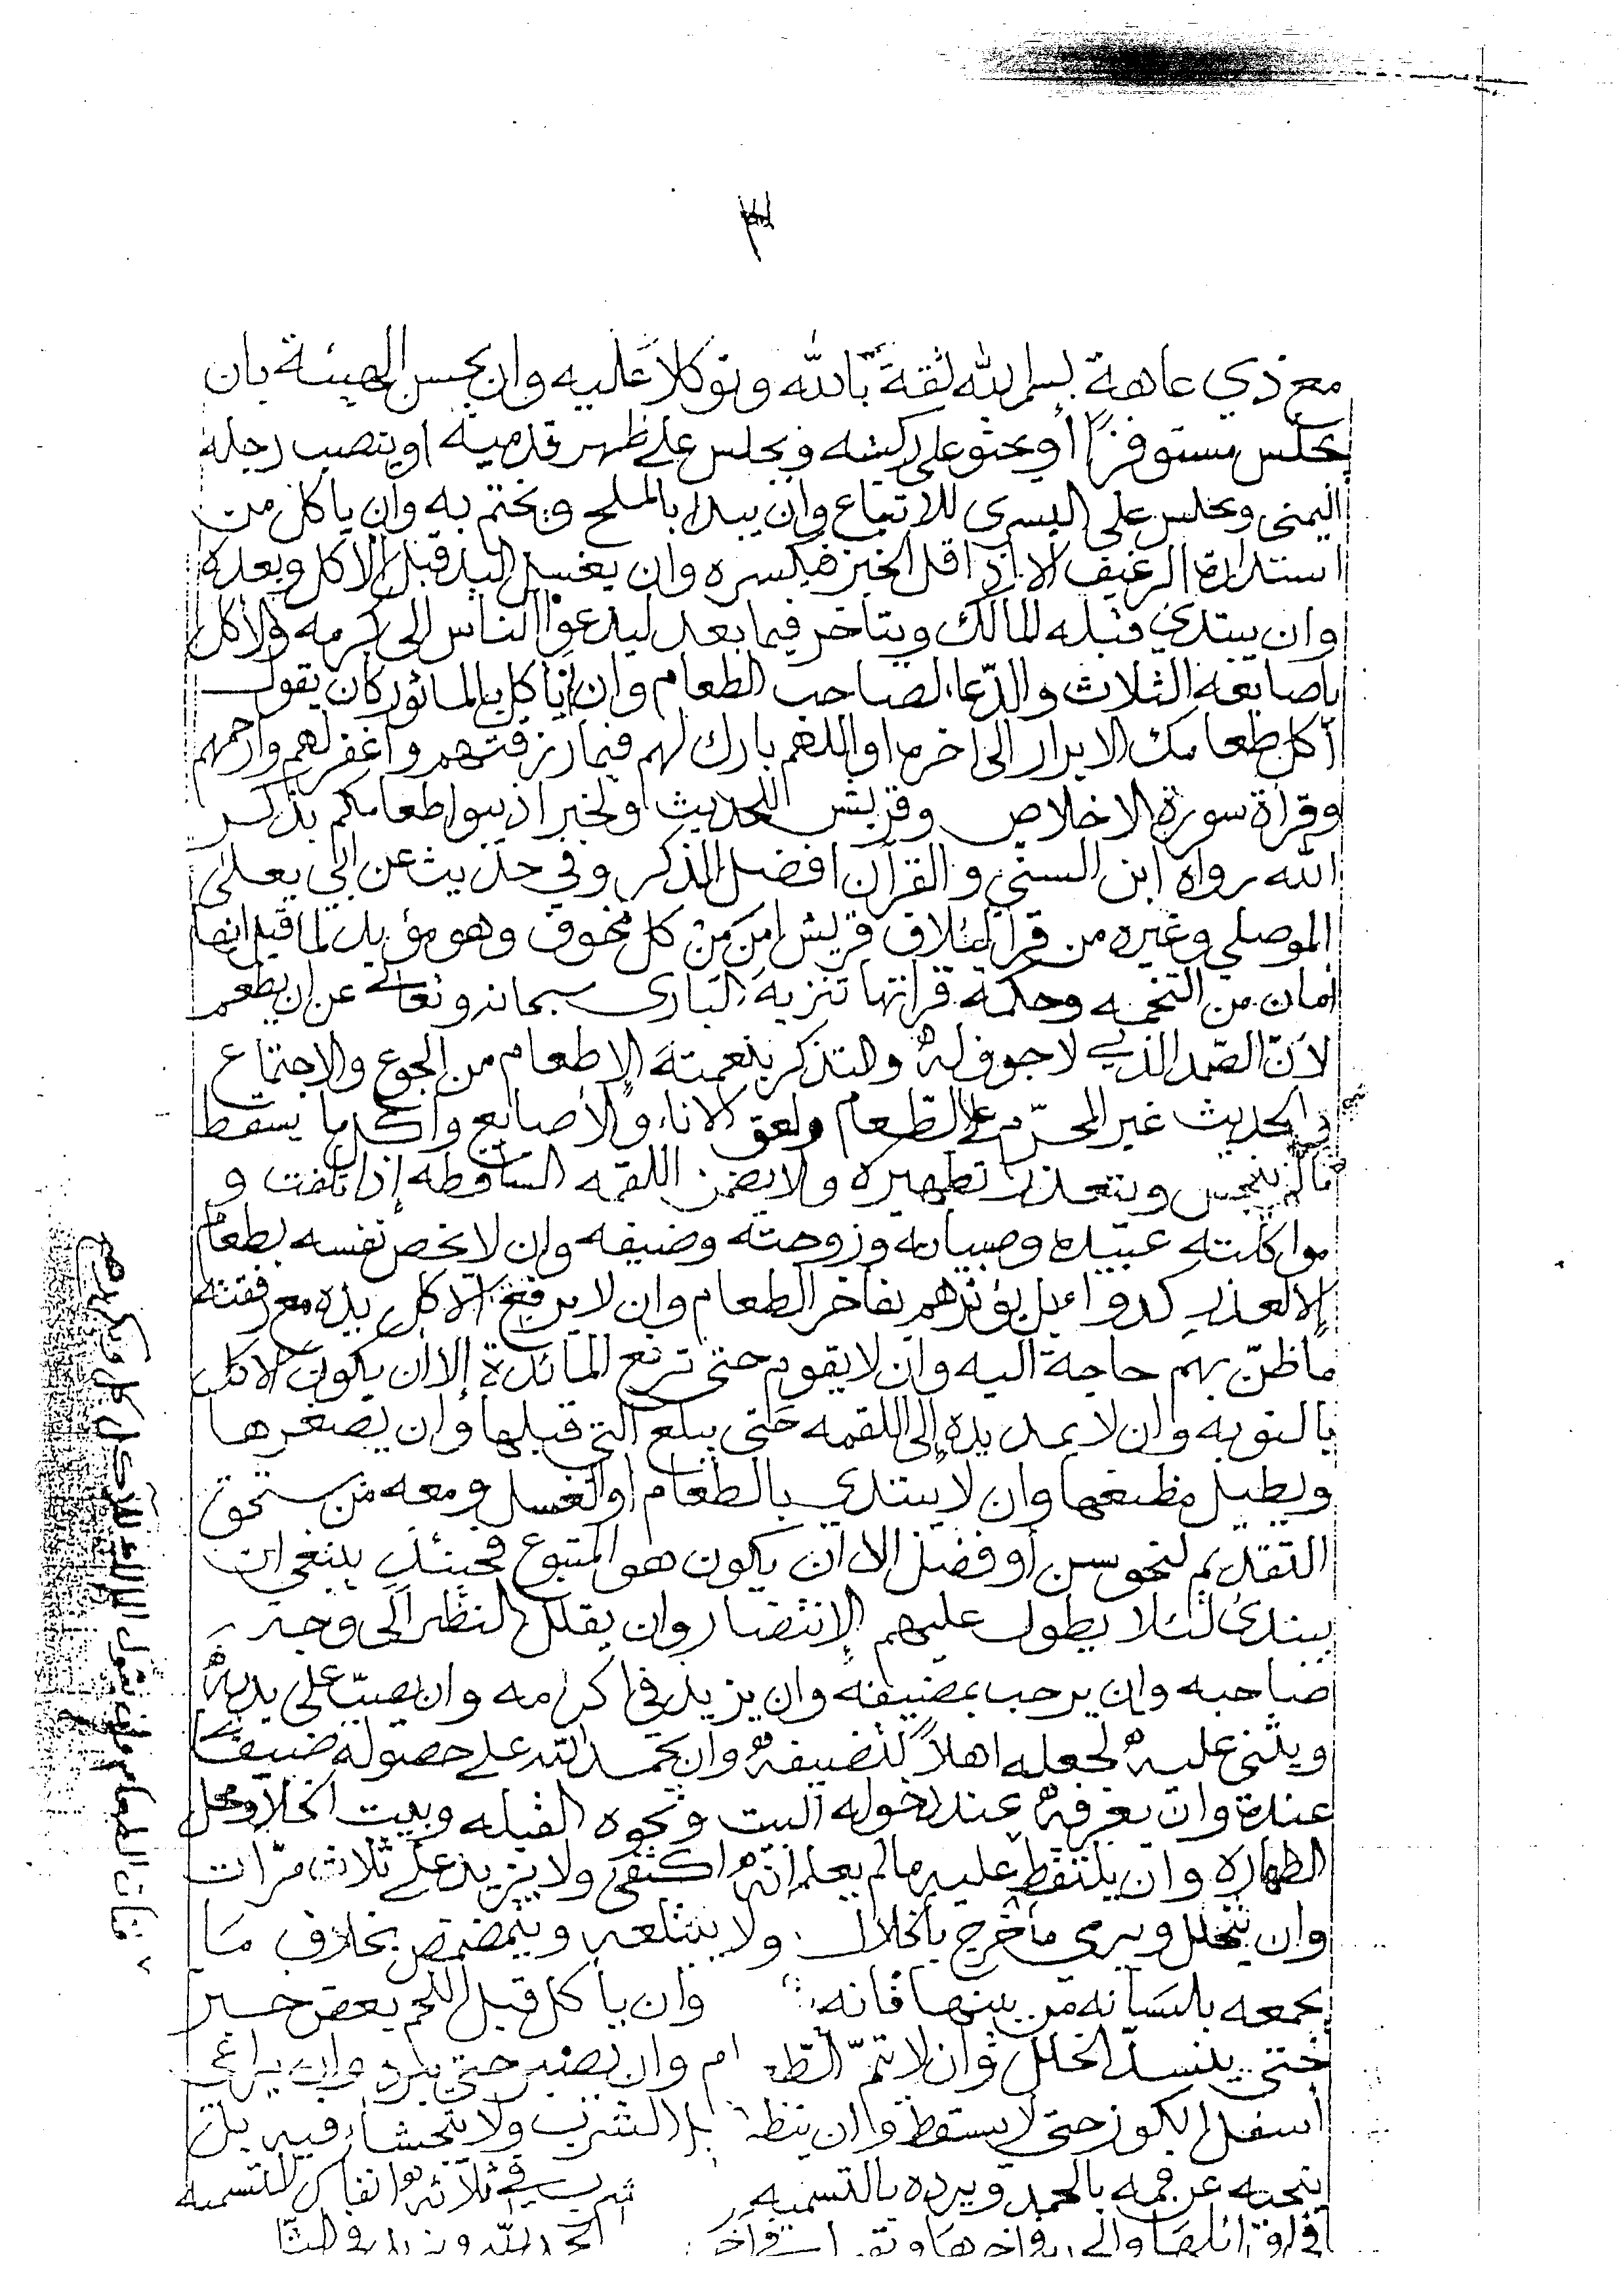 مع ذي عاهة بسم الله ثقة بالله وتوكلا عليه وان يحسن الهيئة بان
يجلس مستوفزا أو يحثو على ركبته ويجلس على ظهر قدميه او ينصب رجله
اليمنى ويجلس على اليسرى للاتباع وان يبدا بالملح ويختم به وان ياكل من
استدارة الرغيف الا اذا قل الخبز فيكسره وان يغسل اليد قبل الاكل وبعده
وان يبتدي قبله المالك ويتاخر فيما بعد ليدعوا الناس الى كرمه والأكل
باصابعه الثلاث والدعا لصاحب الطعام وان ياكل بالماثور كان يقول
أكل طعامك الابرار الى اخره او اللهم بارك لهم فيما رزقتهم واغفر لهم وارحمهم
وقرأة سورة الاخلاص وقريش للحديث ولخبر اذيبوا طعامكم بذكر
الله رواه ابن السني والقرآن افضل الذكر وفي حديث عن ابي يعلى
الموصلي وغيره من قرأ لئلاف قريش امن من كل مخوف وهو مؤيد لما قيل انها
امان من التخمه وحكمة قراتها تنزيه البارى سبحانه وتعالى عن ان يطعم
لأن الصمد الذي لا جوف له والتذكر بنعمته الإطعام من الجوع والاجتماع
في الحديث غير المحرم على الطعام ولعق الاناء والأصابع وأكل ما يسقط
مالم ينجس ويتعذر تطهيره ولا يضمن اللقمه الساقطه إذا تلفت و
مواكلته عبيده وصبيانه وزوجته وضيفه وان لا يخص نفسه بطعام
إلا لعذر كدواء بل يؤثرهم بفاخر الطعام وان لا يرفع الاكل يده مع رفقته
ما ظن بهم حاجة اليه وان لا يقوم حتى ترفع المائدة إلا ان يكون الاكل
بالنوبه وان لا يمد يده إلى اللقمه حتى يبلع التي قبلها وان يصغرها
ويطيل مضغها وان لا يبتدي بالطعام او الغسل ومعه من يستحق
التقديم لنحو سن أو فضل الا ان يكون هو المتبوع فحينئذ ينبغي ان
يبتدئ لئلا يطول عليهم الإنتضار وان يقلل النظر الى وجه
صاحبه وان يرحب بمضيفه وان يزيد في اكرامه وان يصب على يديه
ويثني عليه لجعله اهلاً لتضييفه وان يحمد الله على حصوله ضيفا
عنده وان يعرفه عند دخوله البيت ونحوه القبله وبيت الخلا ومحل
الطهاره وان يلتقط عليه ما لم يعلم انه اكتفى ولا يزيد على ثلاث مرات
وان يتخلل ويرمى ما خرج بالخلال ولا يبتلعه ويتمضمض بخلاف ما
يجمعه بلسانه من بينها فانه وان ياكل قبل اللحم بعض خبز
حتى ينسد الخلل وان لا يشم الطعام وان يصبر حتى يبرد وان يراعى
أسفل الكوز حتى لا يسقط وان ينظر الشرب ولا يتجشاء فيه بل
ينحيه عن فمه بالحمد ويرده بالتسميه شرب في ثلاثه انفاس للتسميه